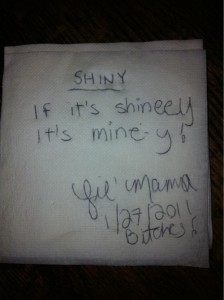 SHINY
If it's shineey
it's mine-y!
Lil' Mama
1/27/2011
Bitches!